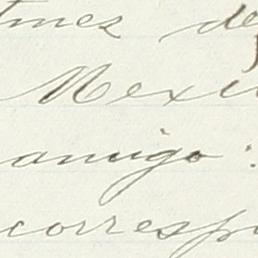 tmez de
Mexi
amigo:
corresp